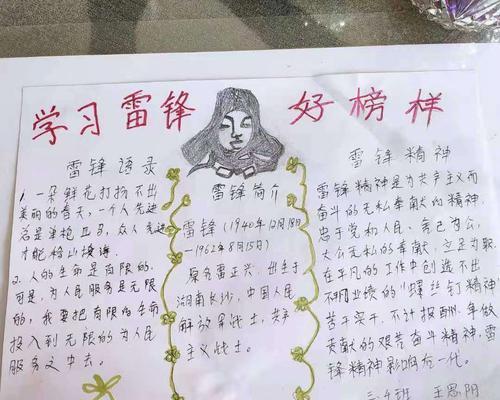 学习雷锋 好榜样
雷锋语录
1. 一朵鲜花打扮不出
美丽的春天，一个人先进
总是单枪匹马，众人先进
才能移山填海。
2. 人的生命是有限的，
可是，为人民服务是无限
的，我要把有限的生命
投入到无限的为人民
服务之中去。
雷锋简介
雷锋（1940年12月18日
—1962年8月15日）
原名雷正兴，出生于
湖南长沙，中国人民
解放军战士，共产
主义战士。
雷锋精神
雷锋精神是为共产主义而
奋斗的无私奉献的精神，
忠于党和人民、舍己为公，
大公无私的奉献，立足为取，
在平凡的工作中创造不出
不朋业绩的“螺丝钉精神”
苦干实干、不计报酬，争做
贡献的艰苦奋斗精神，雷
锋精神影响后一代。
王思阴